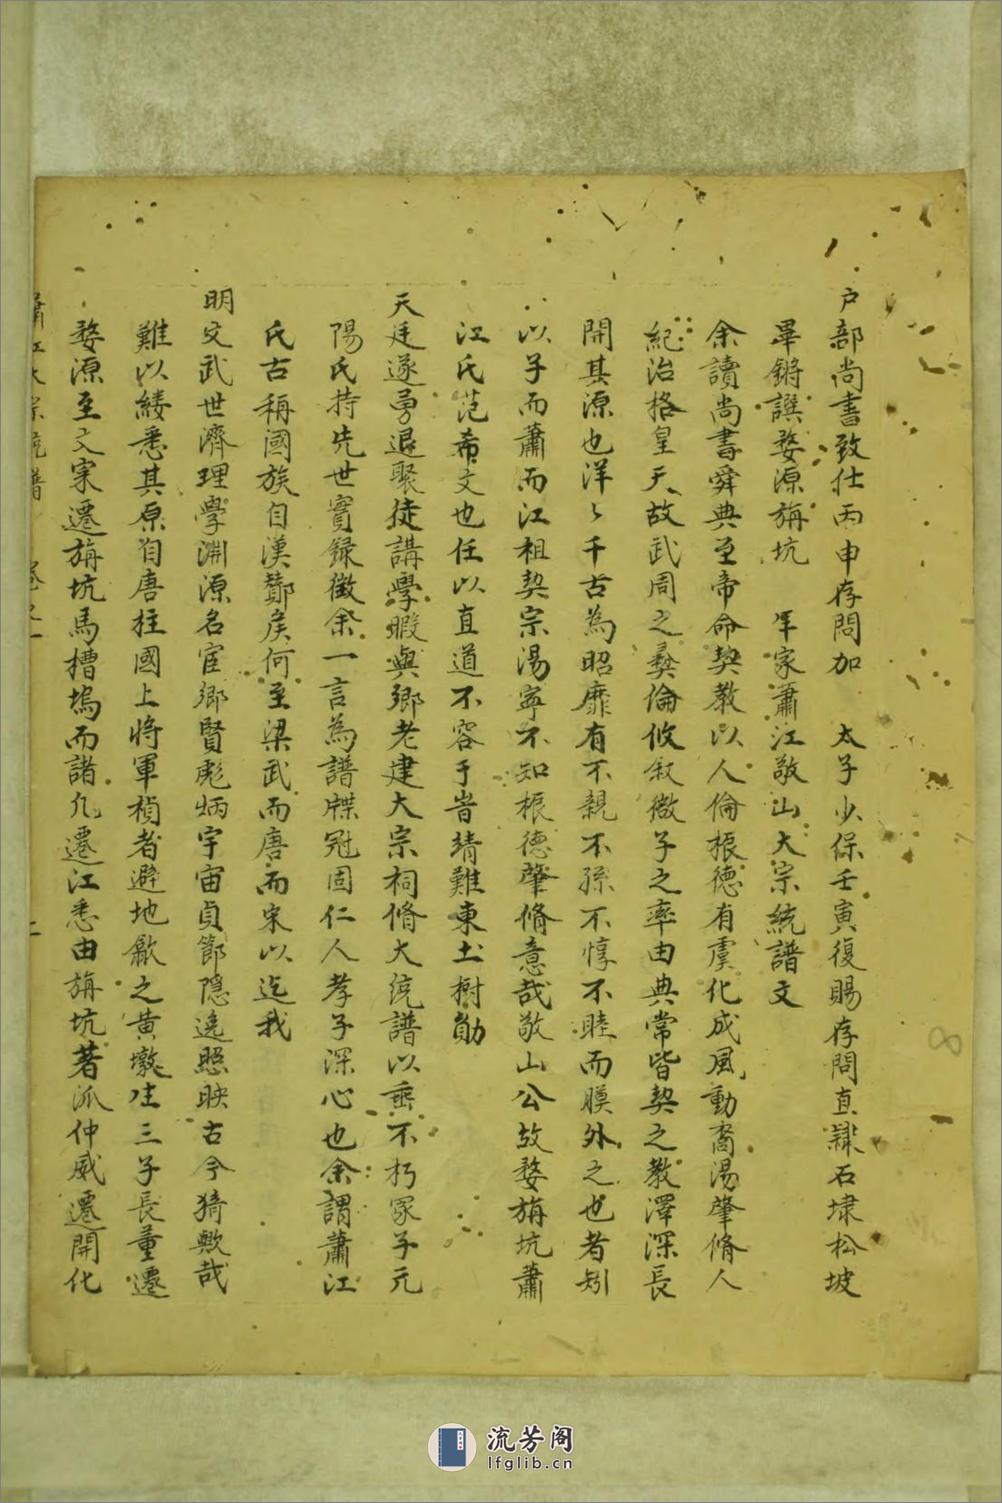 户部尚書致仕丙申存問加　太子少保壬寅復賜存問直隸石埭松坡
畢鏘譔婺源旃坑　年家蕭江敬山大宗統譜文
余讀尚書舜典至帝命契教以人倫振德有虞化成風動裔湯肇脩人
紀治格皇天故武周之彝倫攸叙微子之率由典常皆契之教澤深長
開其源也洋〻千古為昭靡有不親不孫不惇不睦而膜外之也者矧
以子而蕭而江祖契宗湯寧不知振德肇脩意哉敬山公故婺旃坑蕭
江氏范希文也任以直道不容于旹靖難東土樹勛
天廷遂勇退聚徒講學暇與鄉老建大宗祠脩大統譜以垂不朽冢子元
陽氏持先世實録徵余一言為譜牒冠固仁人孝子深心也余謂蕭江
氏古稱國族自漢酇侯何至梁武而唐而宋以迄我
明文武世濟理學淵源名宦鄉賢彪炳宇宙貞節隱逸照映古今猗歟哉
難以縷悉其原自唐柱國上將軍禎者避地歙之黃墩生三子長董遷
婺源至文寀遷旃坑馬槽塢而諸凡遷江悉由旃坑著派仲威遷開化
蕭江大宗統譜　卷之一　二
流芳阁
lfglib.cn
8